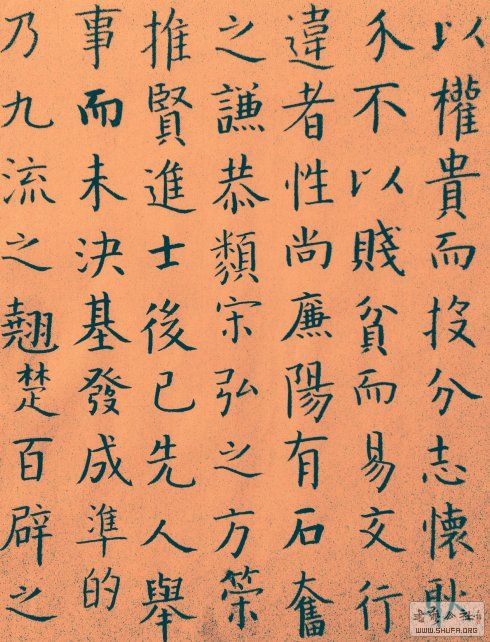 以權貴而投分志懷耿
介不以賤貧而易交行
違者性尚廉陽有石奮
之謙恭類宋弘之方策
推賢進士後已先人舉
事而未決基發成準的
乃九流之翹楚百辟之
WWW.SHUFA.ORG